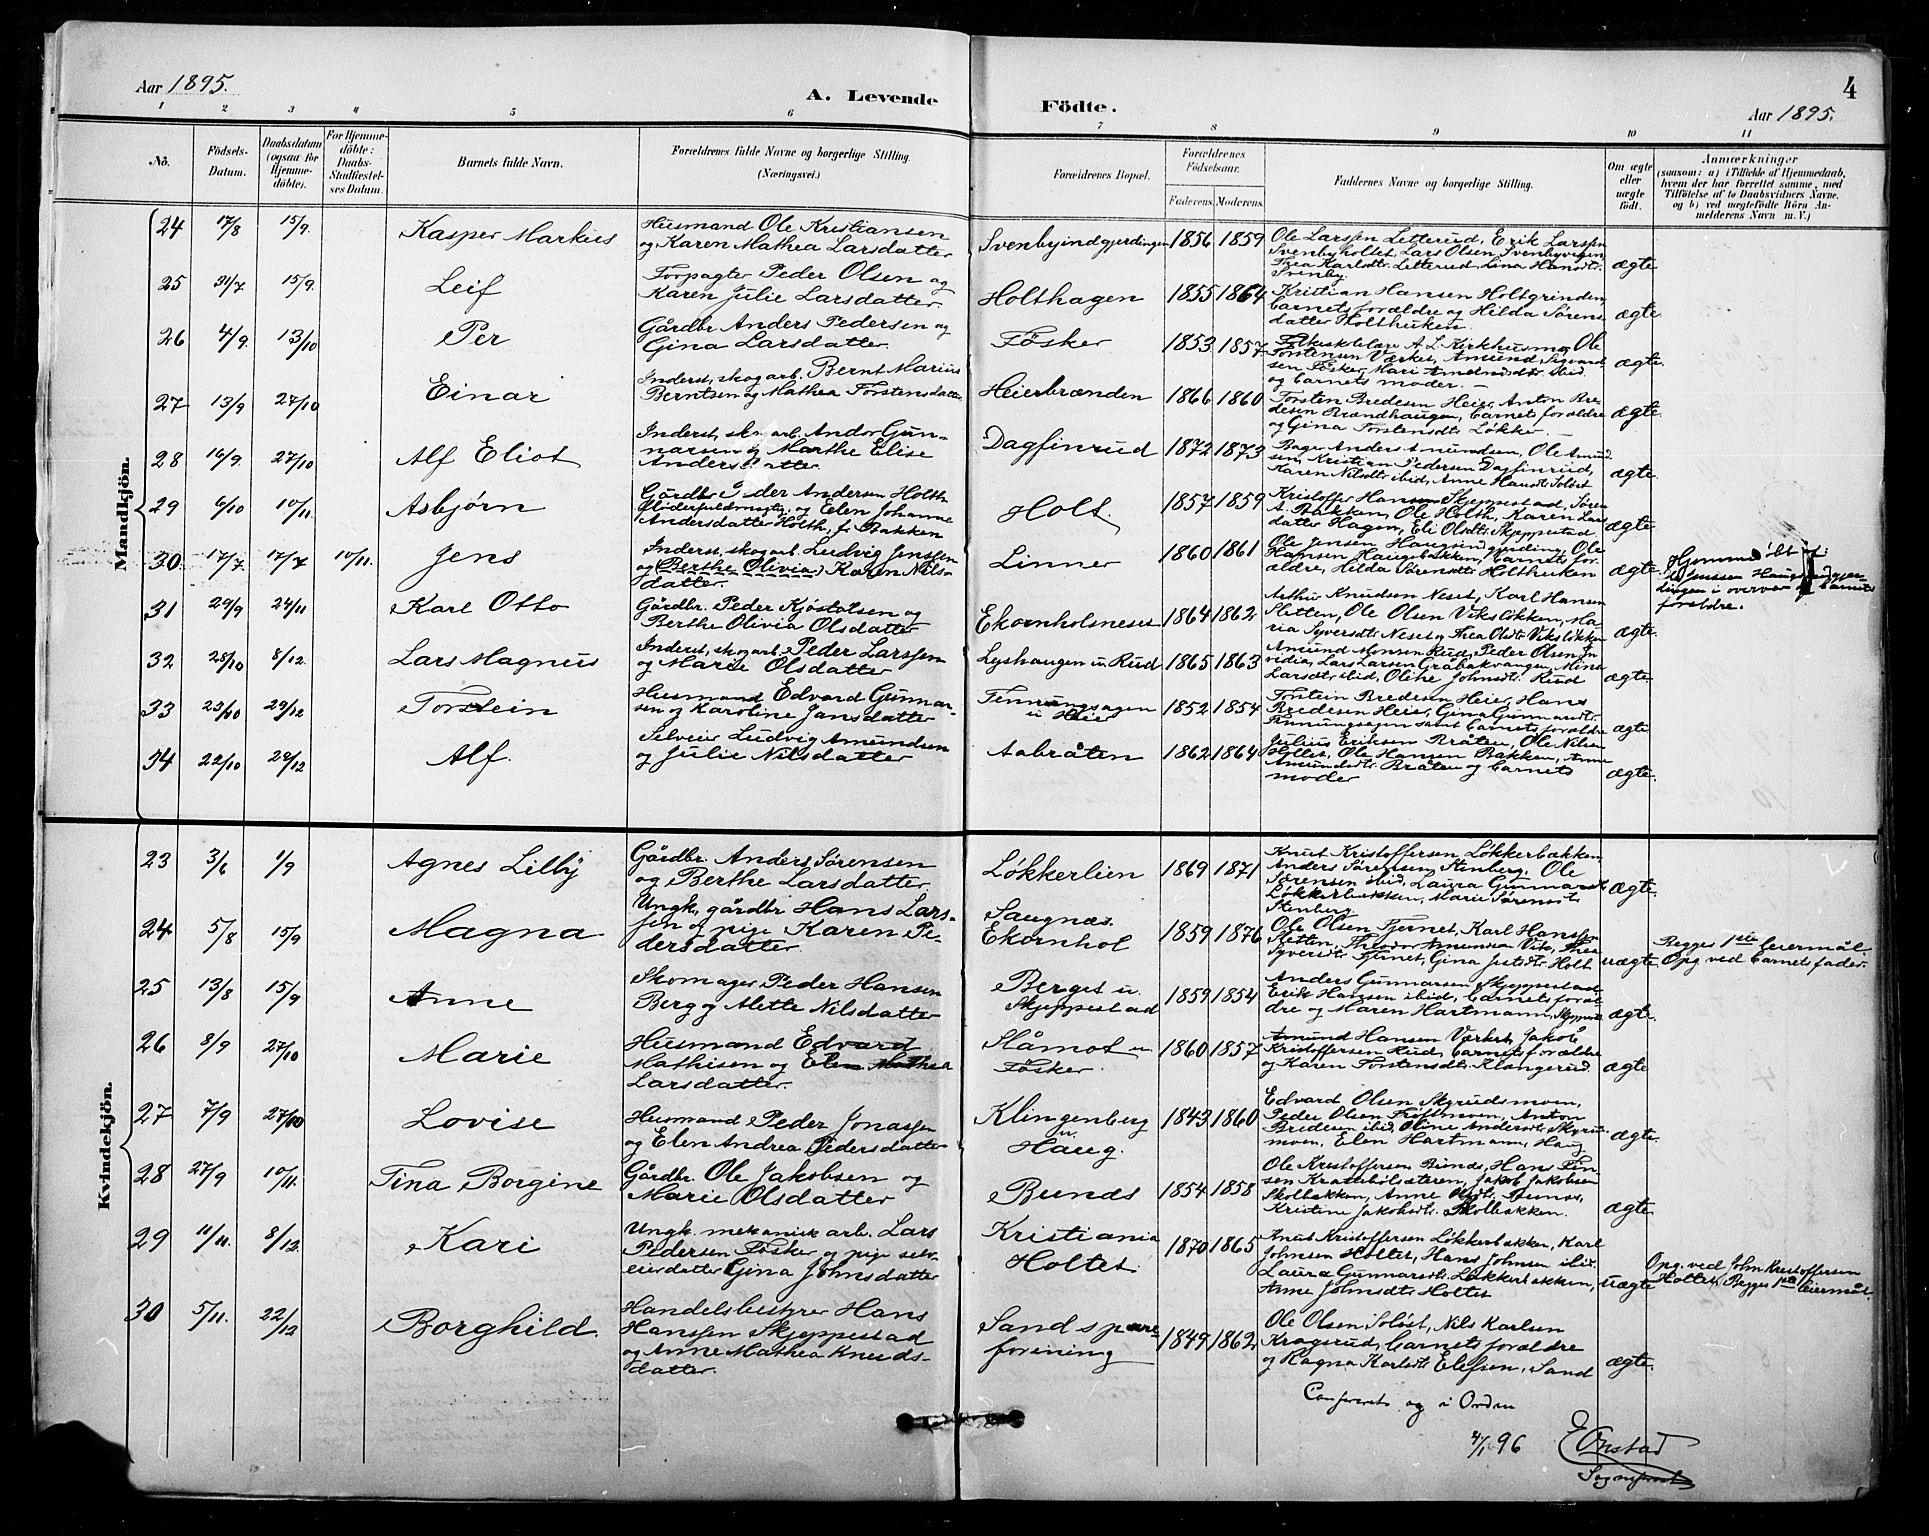 Aar 1895.
A. Levende
Födte.
4
Aar 1895.
1 2 3 4 5 6 7 8 9 10 11
No.
Födsels-Datum.
Daabsdatum (ogsaa for Hjemmedöbte).
For Hjemmedöbte: Daabs-Stadfæstelses Datum.
Barnets fulde Navn.
Forældrenes fulde Navne og borgerlige Stilling. (Næringsvei.)
Forældrenes Bopæl.
Forældrenes Födselsaar.
Faderens. Moderens.
Faddernes Navne og borgerlige Stilling.
Om ægte eller uægte födt.
Anmærkninger
(saasom: a) i Tilfælde af Hjemmedaab, hvem der har forrettet samme, med Tilföielse af to Daabsvidners Navne, og b) ved uægtefödte Börn Anmelderens Navn m. V.)
Mandkjön.
24 17/8 15/9. Kasper Markus
Husmand Ole Kristiansen
og Karen Mathea Larsdatter
Svenbyindgjerdingen 1856 1859
Ole Larsen Letterud, Erik Larsen
Svenbyholtet, Lars Olsen Svenbyvegen
Thea Karlsdtr. Letterud, Lina Hansdtr.
Svenby.
ægte
25 31/7 15/9. Leif
Forpagter Peder Olsen og
Karen Julie Larsdatter
Holthagen 1855 1864
Kristian Hansen Holtgrinden,
barnets forældre og Hilda Sørens-
datter Holthuken.
ægte.
26 4/9. 13/10 Per
Gårdbr. Anders Pedersen og
Gina Larsdatter.
Føsker 1853 1857
A. L. Kirkhusmo, Ole
Torstensen Værket, Amund
sen Føsker, Mari Amundsdtr. ibid
og barnets moder. —
ægte.
27 13/9 27/10 Einar
Inderst, skogarb. Bernt Marius
Berntsen og Mathea Torstensdatter
Heierbrænden 1866 1860
Torsten Bredesen Heier, Anton Bre-
desen Brændhaugen, barnets forældre
og Gina Torstensdtr. Løkker —
ægte.
28 16/9. 27/10 Alf Eliot
Inderst, skogarb. Andor Gun-
narsen og Marthe Elise
Andersdatter.
Dagfinrud 1872 1873
Anders Amundsen, Ole Amund
sen, Kristian Pedersen Dagfinrud,
Karen Nilsdtr. ibid, Anne Hansdtr. Solset
ægte.
29 6/10 10/11. Asbjørn
Gårdbr. Peder Andersen Holth
og Elen Johanne
Andersdatter Holth, f. Bakken
Holt. 1857 1859
Kristoffer Hansen Skjeppestad, Søren
A. Bakken, Ole Holth, Karen Lars
datter Hagen, Eli Olsdtr. Skjeppestad
ægte.
30. 17/7 17/7 10/11. Jens
Inderst, skogarb. Ludvig Jenssen
og (Berthe Olivia) Karen Nils-
datter.
Linner 1860 1861
Ole Jensen Haugsindgjerding, Ole
Hansen Haugsbakken, barnets for-
ældre, Hilda Sørensdtr. Holthuken
ægte
Hjemmedøbt af
Jenssen
dingen i overvær af barnets
forældre.
31 29/9 24/11 Karl Otto
Gårdbr. Peder Kjøstolsen og
Berthe Olivia Olsdatter
Ekornholsneset 1864 1862
Arthur Knudsen Neset, Karl Hansen
Sletten, Ole Olsen Viksløkken, Ma-
ria Syversdtr. Neset og Thea Olsdtr. Viksløkken
ægte.
32 28/10 8/12. Lars Magnus
Inderst, skogarb. Peder Larssen
og Marie Olsdatter
Lyshaugen u. Rud 1865 1863
Amund Monsen Rud, Peder Olsen In
vidia, Lars Larsen Gråbakvangen, Mina
Larsdtr. ibid, Oline Johnsdtr. Rud
ægte.
33 23/10 29/12 Torstein
Husmand Edvard Gunnar-
sen og Karoline Jansdatter
u. Heier 1852 1854
Torstein Bredesen Heier, Hans
Bredesen Heier, Gina Gunnarsdtr.
samt barnets forældre
ægte
34 22/10 29/12 Alf.
Selveier Ludvig Amundsen
og Julie Nilsdatter
Aabråten 1862 1864
Julius Eriksen Bråten, Ole Nilsen
Holtet, Ole Hansen Bakken, Anne
Amundsdtr. Bråten og barnets
moder
ægte.
Kvindekjön.
23 3/6 1/9 Agnes Lilly
Gårdbr. Anders Sørensen
og Berthe Larsdatter
Løkkerlien 1869 1871
Knut Kristoffersen Løkkerbakken,
Anders Sørensen Stenberg, Ole
Sørensen ibid, Laura Gunnarsdtr
Løkkerbakken, Marie Sørensdtr.
Stenberg
ægte.
24 5/8 15/9 Magna
Ungk., gårdbr. Hans Lars-
sen og pige Karen Pe-
dersdatter
Saugnæs.
Ekornhol 1859 1876
Ole Olsen Tjernet, Karl Hanssen
Sletten, Theodor Amundsen Vik, Thea
Syversdtr. Tjernet, Gina Justsdtr. Holt
uægte
Begges 1ste leiermål.
Opg. ved barnets fader.
25 13/8 15/9 Anne
Skomager Peder Hansen
Berg og Alette Nilsdatter
Berget u.
Skjeppestad 1859 1854
Anders Gunnarsen Skjeppestad
Erik Hansen ibid, barnets foræl-
dre og Maren Hartmann, Skjeppestad
ægte.
26 8/9 27/10 Marie
Husmand Edvard
Mathisen og Elen Mathea
Larsdatter.
Slåmot u
Føsker 1860 1857
Amund Hansen Værket, Jakob
Kristoffersen Rud, barnets forældre
og Karen Torstensdtr. Klangerud.
ægte
27 7/9 27/10 Lovise
Husmand Peder Jonassen
og Elen Andrea Pedersdatter
Klingenberg
u.
Haug. 1843 1860
Edvard Olsen Skyrudsmoen,
Peder Olsen Trøftmoen, Anton
Bredesen ibid, Oline Andersdtr. Skyruds-
moen, Elen Hartmann, Haug.
ægte.
28 27/9 10/11. Tina Borgine
Gårdbr. Ole Jakobsen og
Marie Olsdatter
Bunæs 1854 1858
Ole Kristoffersen Bunæs, Hans Fin-
sen Krakebølsæteren, Jakob Jakobsen
Skolbakken, Anne Olsdtr. Bunæs,
Kristine Jakobsdtr. Skolbakken.
ægte
29 11/11. 8/12 Kari
Ungk. mekanisk arb. Lars
Pedersen Føsker og pige selv-
eierdatter Gina Johnsdatter
Kristiania
Holtet. 1870 1865
Knut Kristoffersen Løkkerbakken, Karl
Johnsen Holtet, Hans Johnsen ibid.
Laura Gunnarsdtr. Løkkerbakken,
Anne Johnsdtr. Holtet
uægte
Opg. ved John Kristoffersen
Holtet, Begges 1ste leiermål.
30 5/11. 22/12 Borghild.
Handelsbestyrer Hans
Hanssen Skjeppestad
og Anne Mathea Knuds-
datter.
Sands pare-
forening 1849 1862
Ole Olsen Soløst, Nils Karlsen
Kragsrud, barnets forældre
og Ragna Karlsdtr. Elefsen, Sand
ægte.
Confereret og i Orden
4/1 96 E Ørstad
Sogneprest